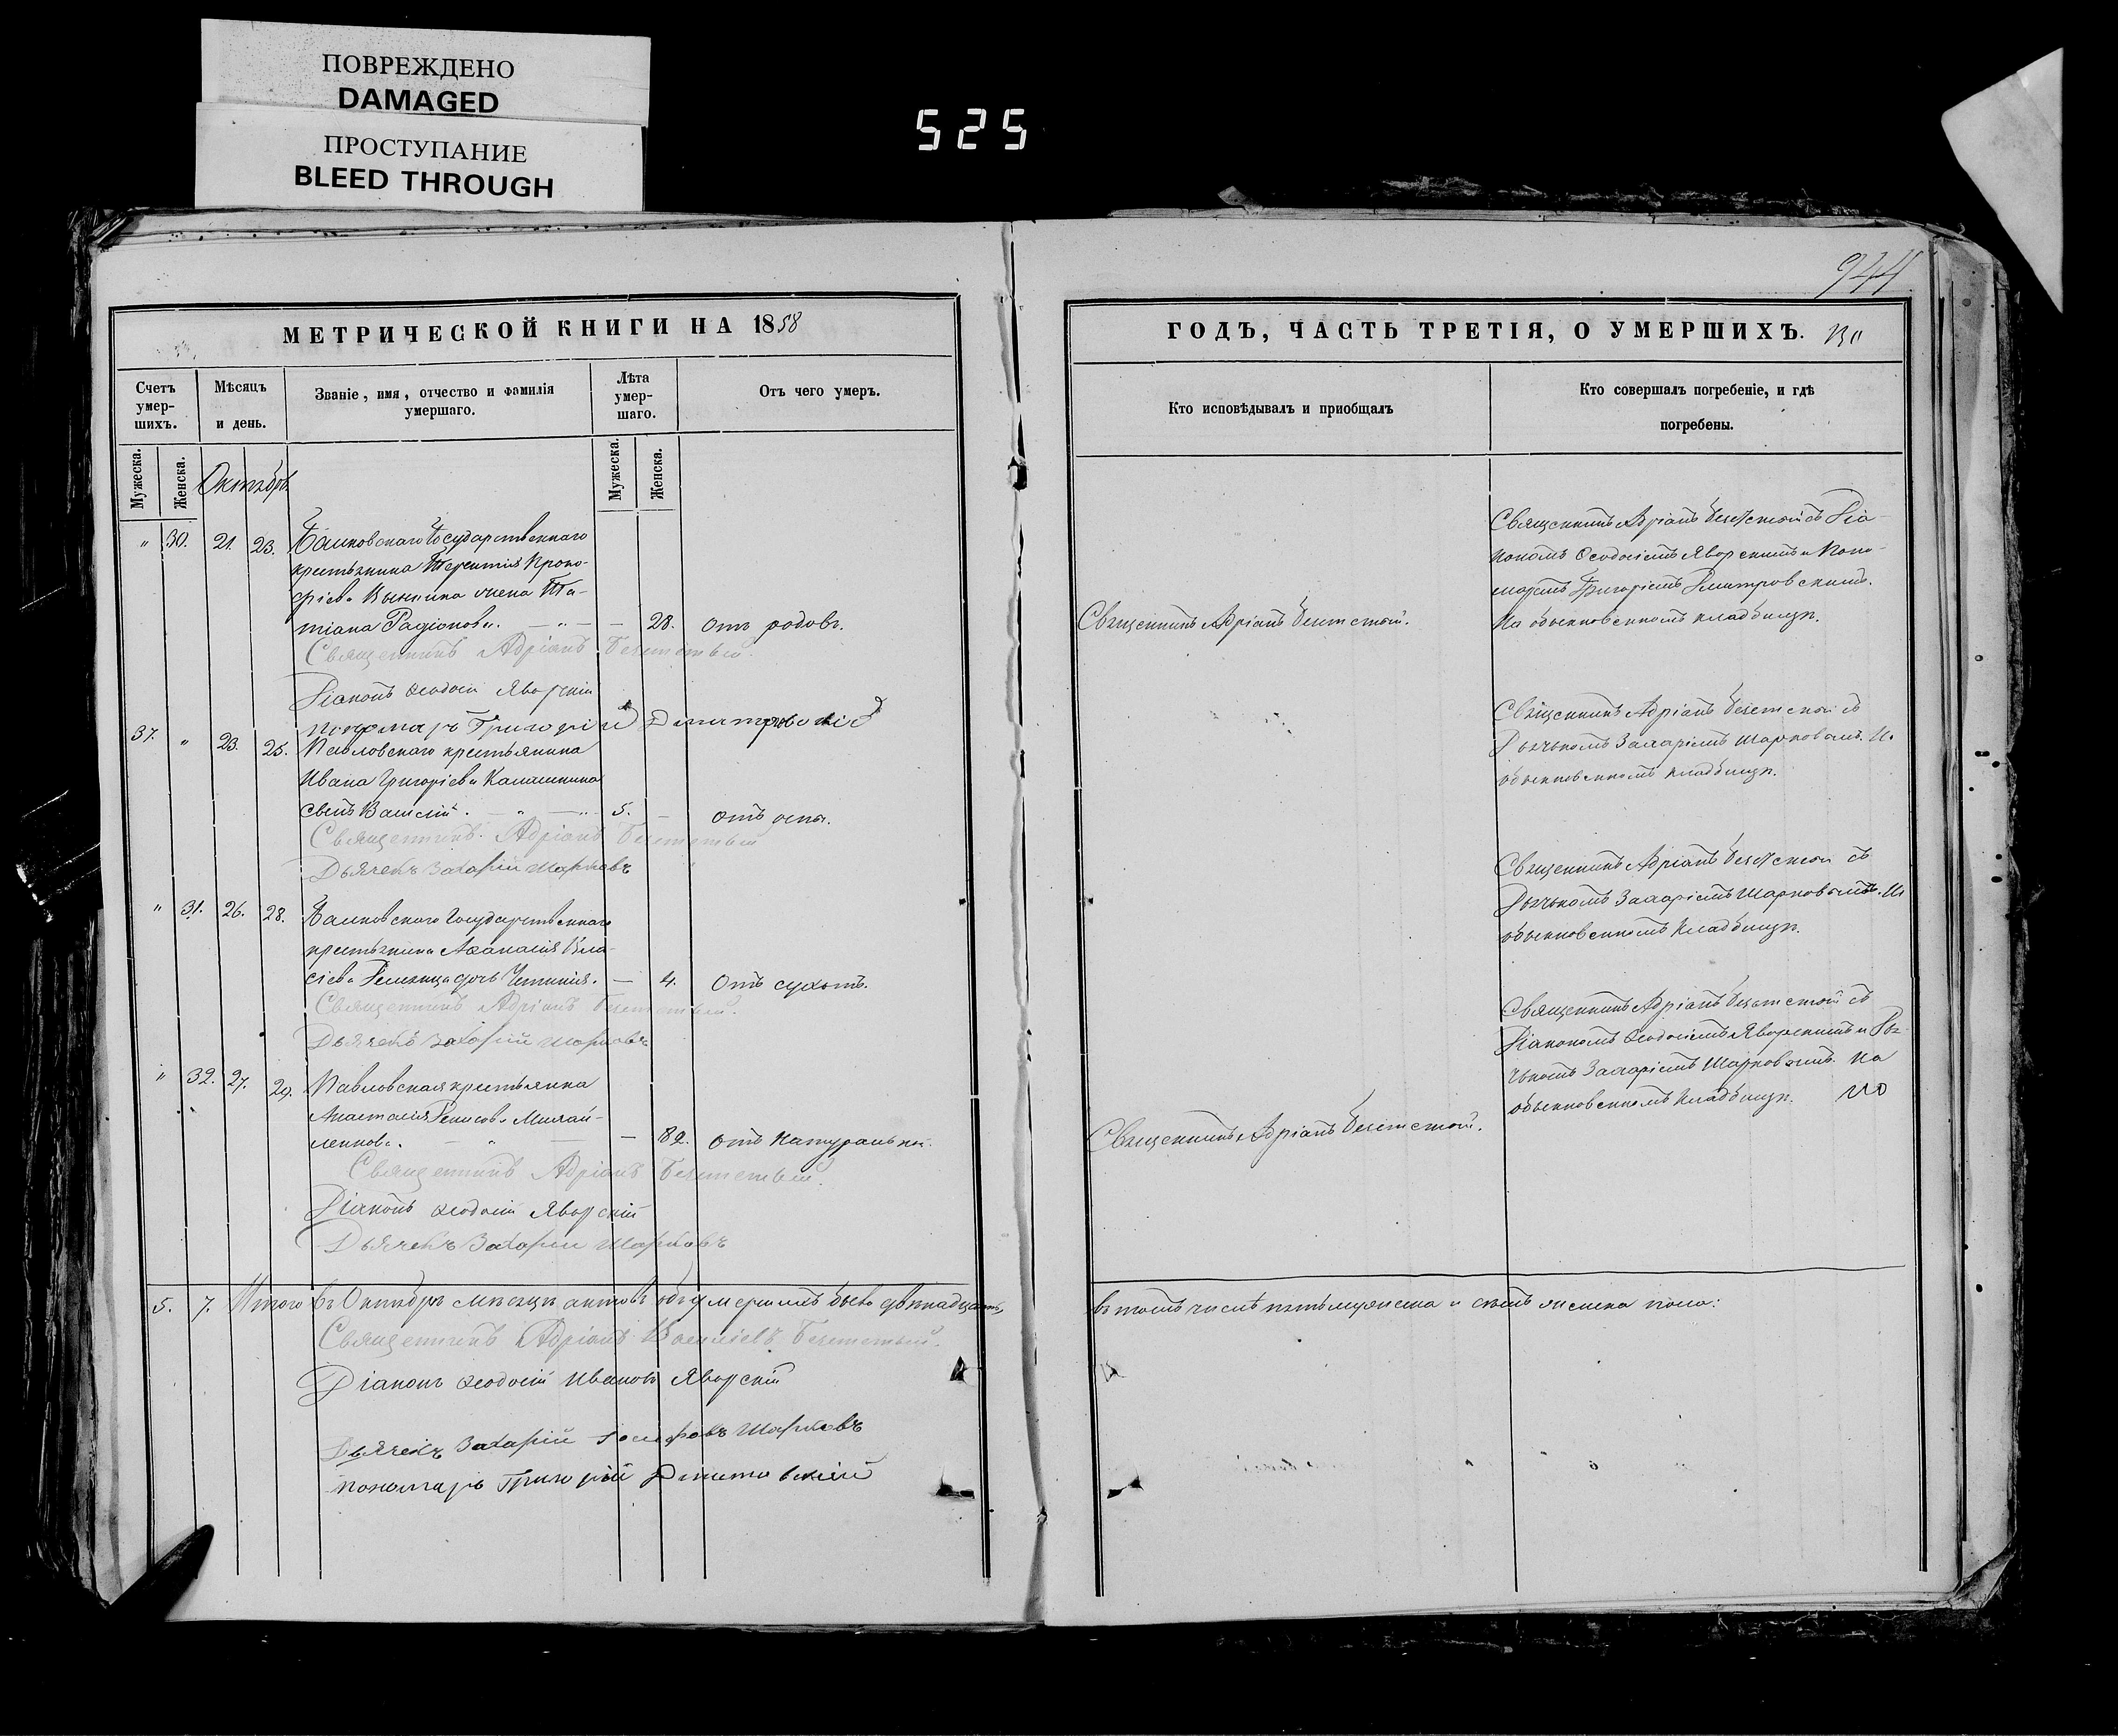 ПОВРЕЖДЕНО
DAMAGED
ПРОСТУПАНИЕ
BLEED THROUGH
525
944
МЕТРИЧЕСКОЙ КНИГИ НА 1858
Счетъ умер-шихъ.
Мѣсяцъ и день.
Званіе, имя, отчество и фамилія умершаго.
Лѣта умер-шаго.
Отъ чего умеръ.
Мужеска.
Женска.
Октябрь
Мужеска.
Женска.
" 30. 21. 23. Государственнаго
крестьянина Терентія Проко-
фіева жена Та-
тіана Радіонова. — " — — 28. Отъ родовъ.
Священникъ Адріанъ
Діаконъ Ѳеодосій Яворскій
Пономарь Григорій Дмитровскій
37. " 23. 25. Павловского крестьянина
Ивана Григоріева Калашника
сынъ Василій. 5. — Отъ оспы.
Священникъ Адріанъ
Дьячекъ Захарій Шарковъ
" 31. 26. 28. Государственнаго
крестьянина Аѳанасія Вла-
сіева дочь — 4. Отъ сухотъ.
Священникъ Адріанъ
Дьячекъ Захарій Шарковъ
" 32. 27. 29. Павловская крестьянка
Анастасія Денисова Михай-
ленкова. — " — — 82. Отъ натуральной.
Священникъ Адріанъ
Діаконъ Ѳеодосій Яворскій
Дьячекъ Захарій Шарковъ
5. 7. Итого въ Октябрѣ мѣсяцѣ актовъ объ умершихъ было двѣнадцать,
Священникъ Адріанъ Василіевъ
Діаконъ Ѳеодосій Ивановъ Яворскій
Дьячекъ Захарій Іосифовъ Шарковъ
Пономарь Григорій
ГОДЪ, ЧАСТЬ ТРЕТІЯ, О УМЕРШИХЪ.
Кто исповѣдывалъ и приобщалъ
Кто совершалъ погребеніе, и гдѣ погребены.
Священникъ Адріанъ
Священникъ Адріанъ съ Діа-
кономъ Ѳеодосіемъ Яворскимъ и Поно-
маремъ Григоріемъ Дмитровскимъ.
На обыкновенномъ кладбищѣ.
Священникъ Адріанъ съ
Дьячкомъ Захаріемъ Шарковымъ. На
обыкновенномъ кладбищѣ.
Священникъ Адріанъ съ
Дьячкомъ Захаріемъ Шарковымъ. На
обыкновенномъ кладбищѣ.
Священникъ Адріанъ
Священникъ Адріанъ съ
Діакономъ Ѳеодосіемъ Яворскимъ и Дья-
чкомъ Захаріемъ Шарковымъ. На
обыкновенномъ кладбищѣ.
въ томъ числѣ пять мужеска и семь женска пола: